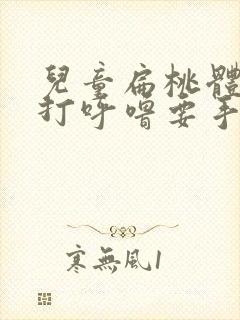 兒童扁桃體
打呼嚕要手
寒無風1